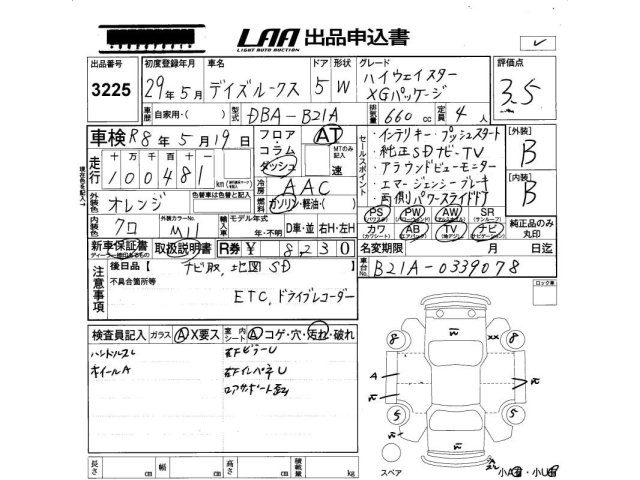 LAA 出品申込書
LIGHT AUTO AUCTION
出品番号 初度登録年月 車名 ドア 形状 グレード 評価点
3225 29年5月 デイズルークス 5 W ハイウェイスター
XGパッケージ 3.5
車歴 自家用・( ) 型式 DBA-B21A 排気量 660 cc 定員 4 人
車検 R8年5月19日 フロア・コラム ダッシュ AT MTのみ記入 速
セールスポイント
・インテリキー・プッシュスタート
・純正SDナビ・TV
・アラウンドビューモニター
・エマージェンシーブレーキ
・両側パワースライドドア
[外装] B
[内装] B
走行 十万 万 千 百 十 一
100481 km
現在色を記入
外装色 オレンジ 色替車は色替と記入
冷房 AAC
燃料 ガソリン・軽油・( )
内装色 クロ 外装カラーNo. 輸入車 モデル年式 年・不明 D車・並 右H・左H
PS (パワステ) PW (パワーウィンド) AW (アルミ) SR (サンルーフ)
カワ (カワシート) AB (エアバッグ) TV (地デジ) ナビ (ナビゲーション)
純正品のみ丸印
新車保証書 取扱説明書 R券 ¥ 8,230
名変期限 月 日迄
車台No. B21A-0339078
注意事項
後日品 【 ナビ取、地図SD 】
不具合箇所等
ETC、ドライブレコーダー
ロック車
検査員記入 ガラス A X要ス 室内 シート A コゲ・穴・汚れ・破れ
ハンドルスレ
ホイールA
右FピラーU
8 8
A
XX
5 5
スペア
長さ cm 幅 cm 高さ cm 積載量 kg
小A 小U